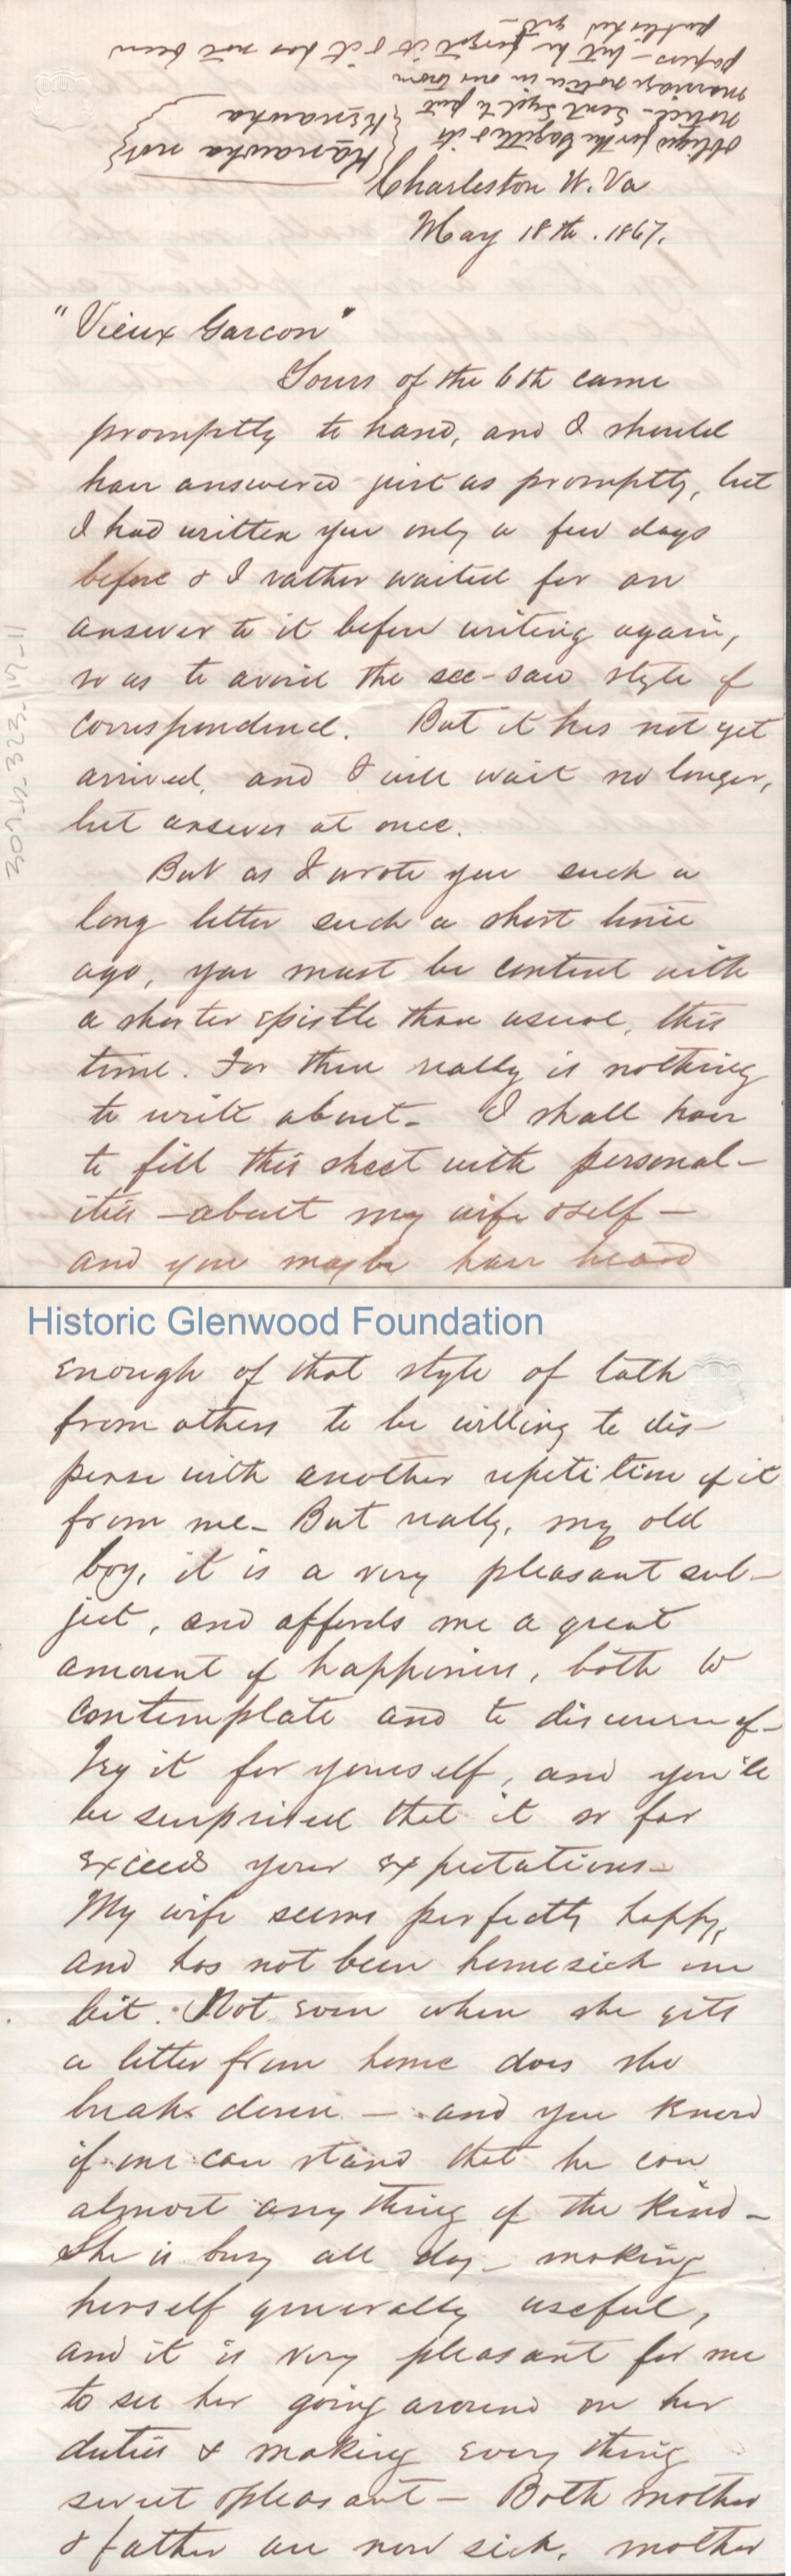 Obliged for the Gazette & its
notice - Sent Syd. to put
marriage notice in our town
papers - but he forgot it & it has not been
published yet -
Kanawha not
Kenawha
Charleston W. Va
May 18th. 1867.
"Vieux Garcon"
Yours of the 6th came
promptly to hand, and I should
have answered just as promptly, but
I had written you only a few days
before & I rather waited for an
answer to it before writing again,
so as to avoid the see-saw style of
correspondence. But it has not yet
arrived, and I will wait no longer,
but answer at once.
But as I wrote you such a
long letter such a short time
ago, you must be content with
a shorter epistle than usual, this
time. For there really is nothing
to write about - I shall have
to fill this sheet with personal-
ities - about my wife & self -
and you maybe have heard
307-B-323-17-11
Historic Glenwood Foundation
enough of that style of talk
from others to be willing to dis-
pense with another repetition of it
from me - But really, my old
boy, it is a very pleasant sub-
ject, and affords me a great
amount of happiness, both to
contemplate and to discourse of -
Try it for yourself, and you'll
be surprised that it so far
exceeds your expectations -
My wife seems perfectly happy,
and has not been homesick one
bit. Not even when she gets
a letter from home does she
break down - and you know
if one can stand that he can
almost anything of the kind -
She is busy all day - making
herself generally useful,
and it is very pleasant for me
to see her going around on her
duties & making every thing
sweet & pleasant - Both mother
& father are now sick, mother